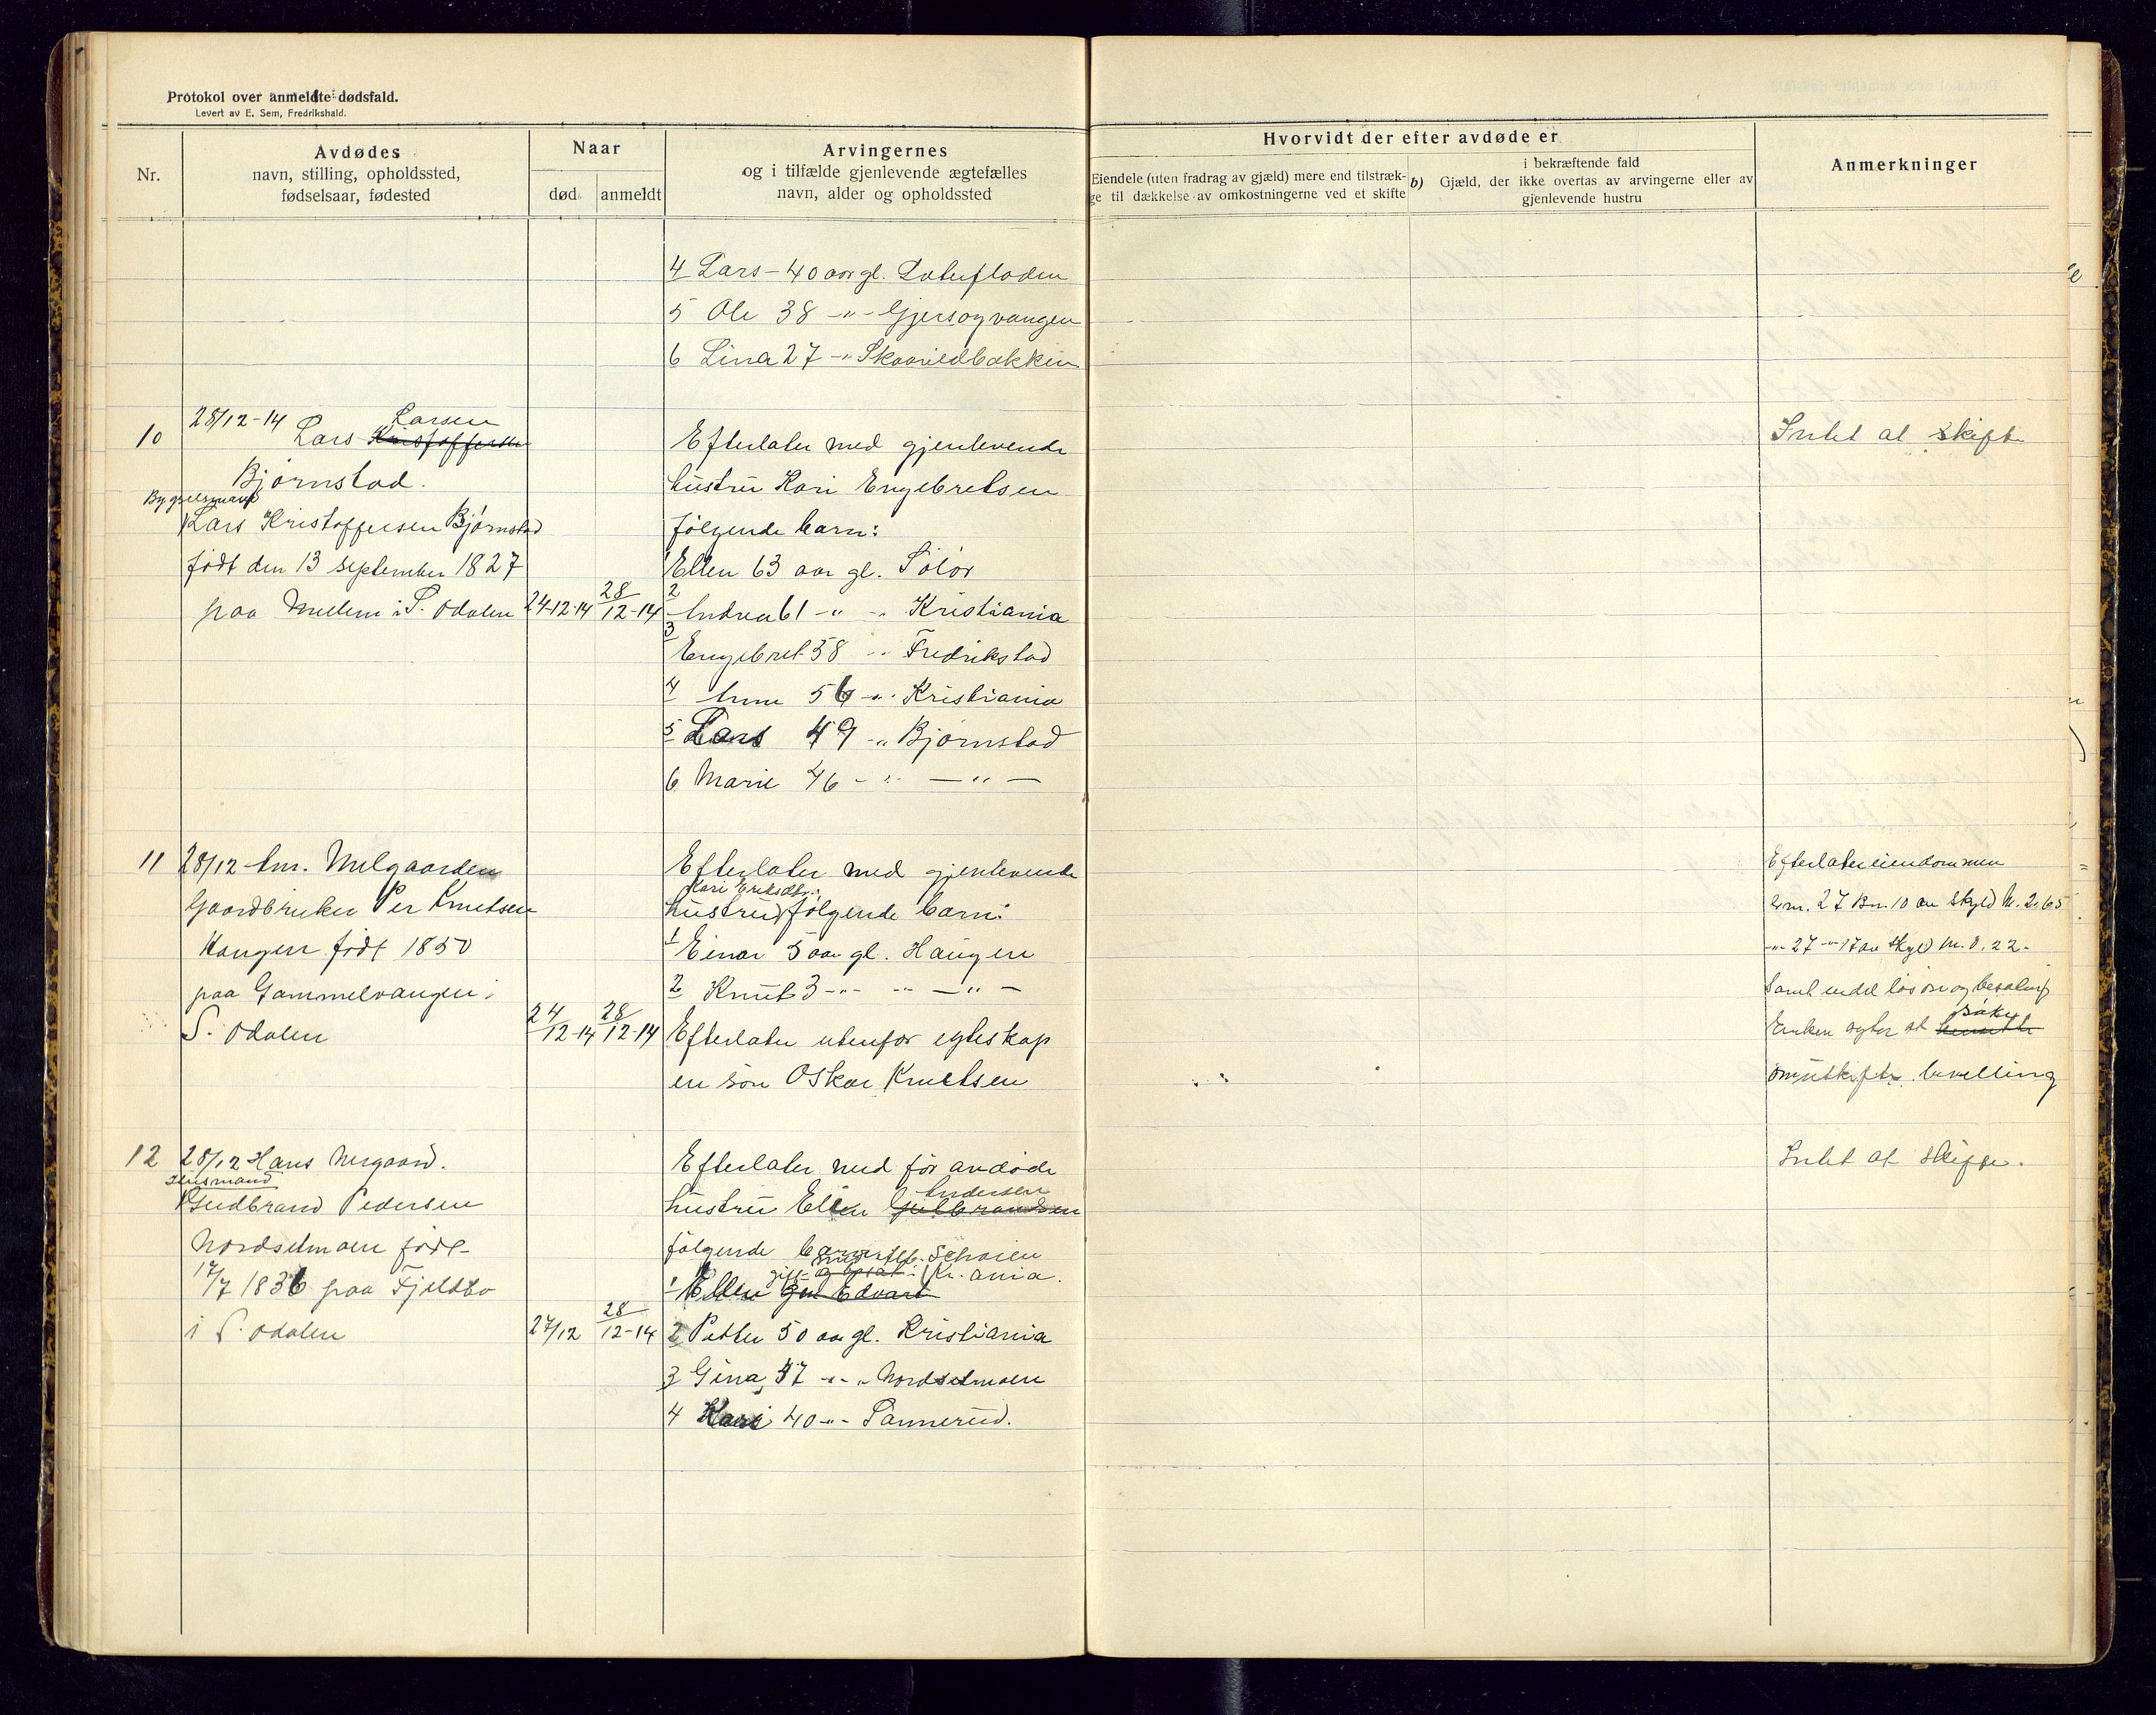 Protokol over anmeldte dødsfald.
Levert av E. Sem, Fredrikshald.
Nr.
Avdødes
navn, stilling, opholdssted,
fødselsaar, fødested
Naar
død
anmeldt
Arvingernes
og i tilfælde gjenlevende ægtefælles
navn, alder og opholdssted
Hvorvidt der efter avdøde er
Eiendele (uten fradrag av gjæld) mere end tilstræk-
ge til dækkelse av omkostningerne ved et skifte
b)
i bekræftende fald
Gjæld, der ikke overtas av arvingerne eller av
gjenlevende hustru
Anmerkninger
4 Lars - 40 aar gl.
5 Ole 38 -"- Gjersøyvangen
6 Lina 27 -"-
10
28/12-14 Larsen
Lars Kristoffersen
Bjørnstad.
Bygselsmand
Lars Kristoffersen Bjørnstad
født den 13 september 1827
paa Mellem i S. Odalen
24-12-14
28/12-14
Efterlater med gjenlevende
hustru Kari Engebretsen
følgende barn:
1 Ellen 63 aar gl. Solør
2 Andrea 61 -"- Kristiania
3 Engebret 58 -"- Fredrikstad
4 Anne 56 -"- Kristiania
5 Lars 49 -"- Bjørnstad
6 Marie 46 -"- -"-
Intet at skifte
11
28/12 Am. Melgaarden
Gaardbruker Per Knutsen
Haugen født 1850
paa Gammelvangen i
S. Odalen
24/12-14
28/12-14
Efterlater med gjenlevende
Kari Eriksdtr.
hustru følgende barn:
1 Einar 5 aar gl. Haugen
2 Knut 3 -"- -"- -"-
Efterlater utenfor egteskap
en søn Oskar Knutsen
Efterlater eiendommen
Gn. 27 Bn. 10 av Skyld M. 2.65
-"- 27 -"- 17 av Skyld M. 0.22-
samt endel løsøre og besætning
søke
Enken agter at
om uskifte bevilling
12
28/12 Hans Nergaard.
Husmand
Gudbrand Pedersen
Nordsetmoen født
17/7 1836 paa Fjeldbo
i S. Odalen
27/12
28/12-14
Efterlater med før avdøde
Andersen
hustru Ellen Gulbrandsen
følgende barn
Kr. ania.
1 Ellen Edvart
2 Petter 50 aar gl. Kristiania
3 Gina 47 -"- Nordsetmoen
4 Kari 40 -"- Sannerud.
Intet at skifte.